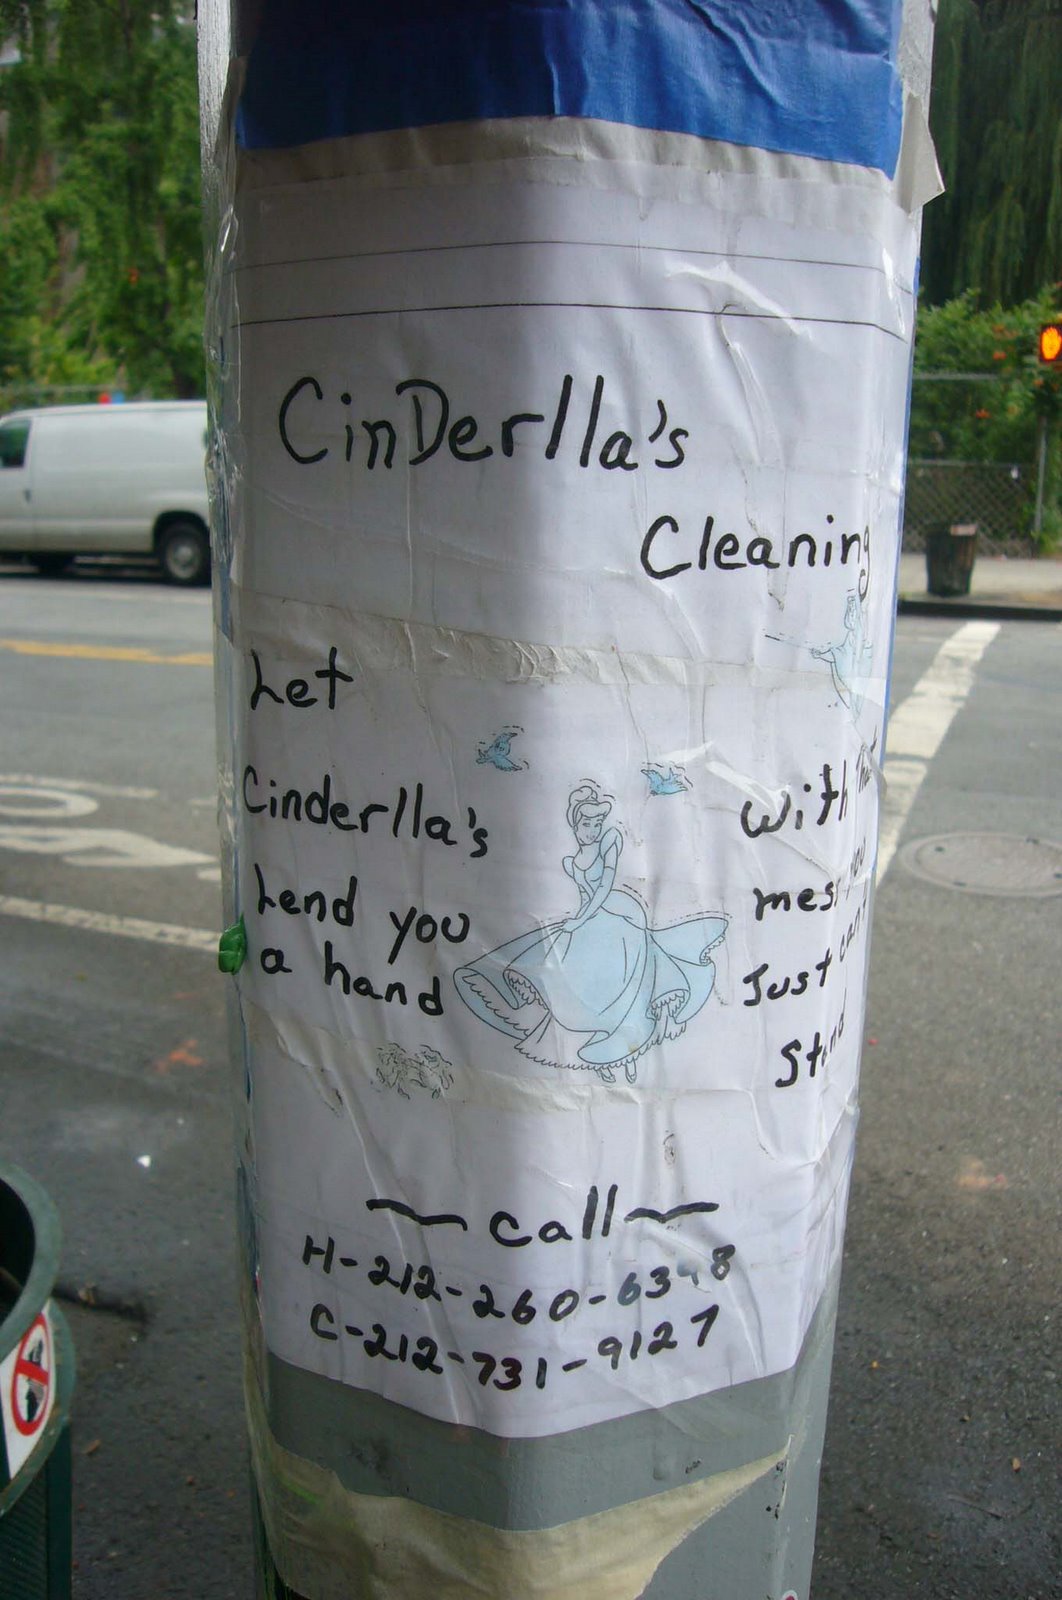 CinDerlla's
Cleaning
Let
Cinderlla's
Lend you
a hand
With
mess you
Just can't
Stand
~ call ~
H-212-260-6398
C-212-731-9127